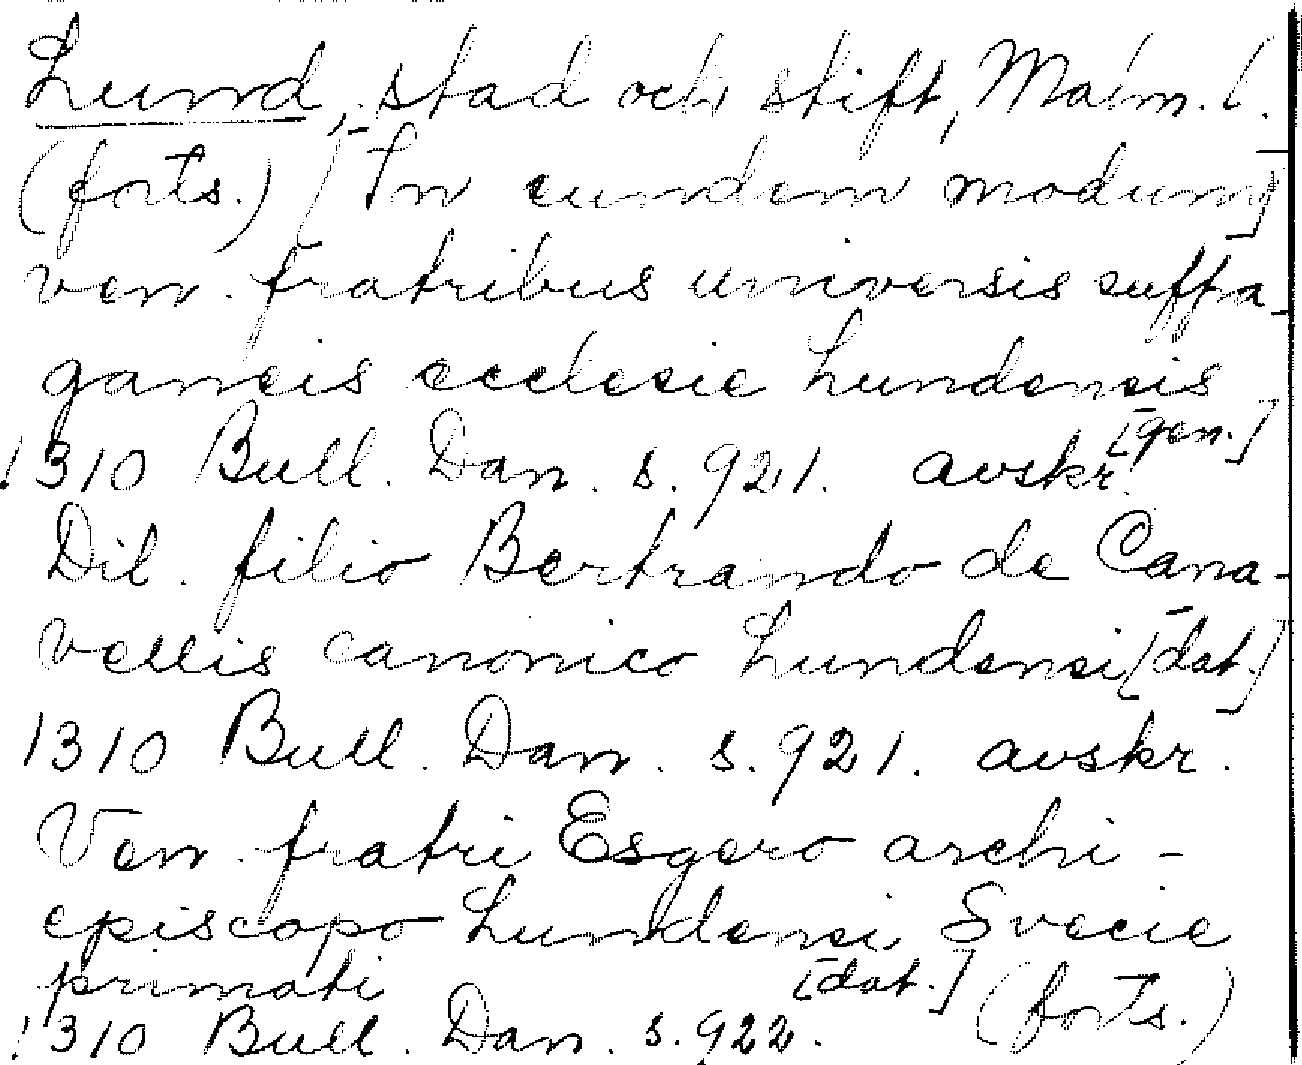 Lund, stad och stift, Malm. l.
(forts.) [In eundem modum]
ven. fratribus universis suffra-
ganeis ecclesie Lundensis
[gen.]
1310 Bull. Dan. s. 921. avskr.
Dil. filio Bertrando de Cana-
vellis canonico Lundensi [dat.]
1310 Bull. Dan. s. 921. avskr.
Ven. fratri Esgero archi-
episcopo Lundensi, Svecie
primati [dat.] (forts.)
1310 Bull. Dan. s. 922.